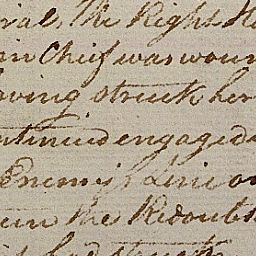 the Right
in Chief was woun
oving struck her
ntinued engaged
Enemy's Line or
un the Redoubts
had struck